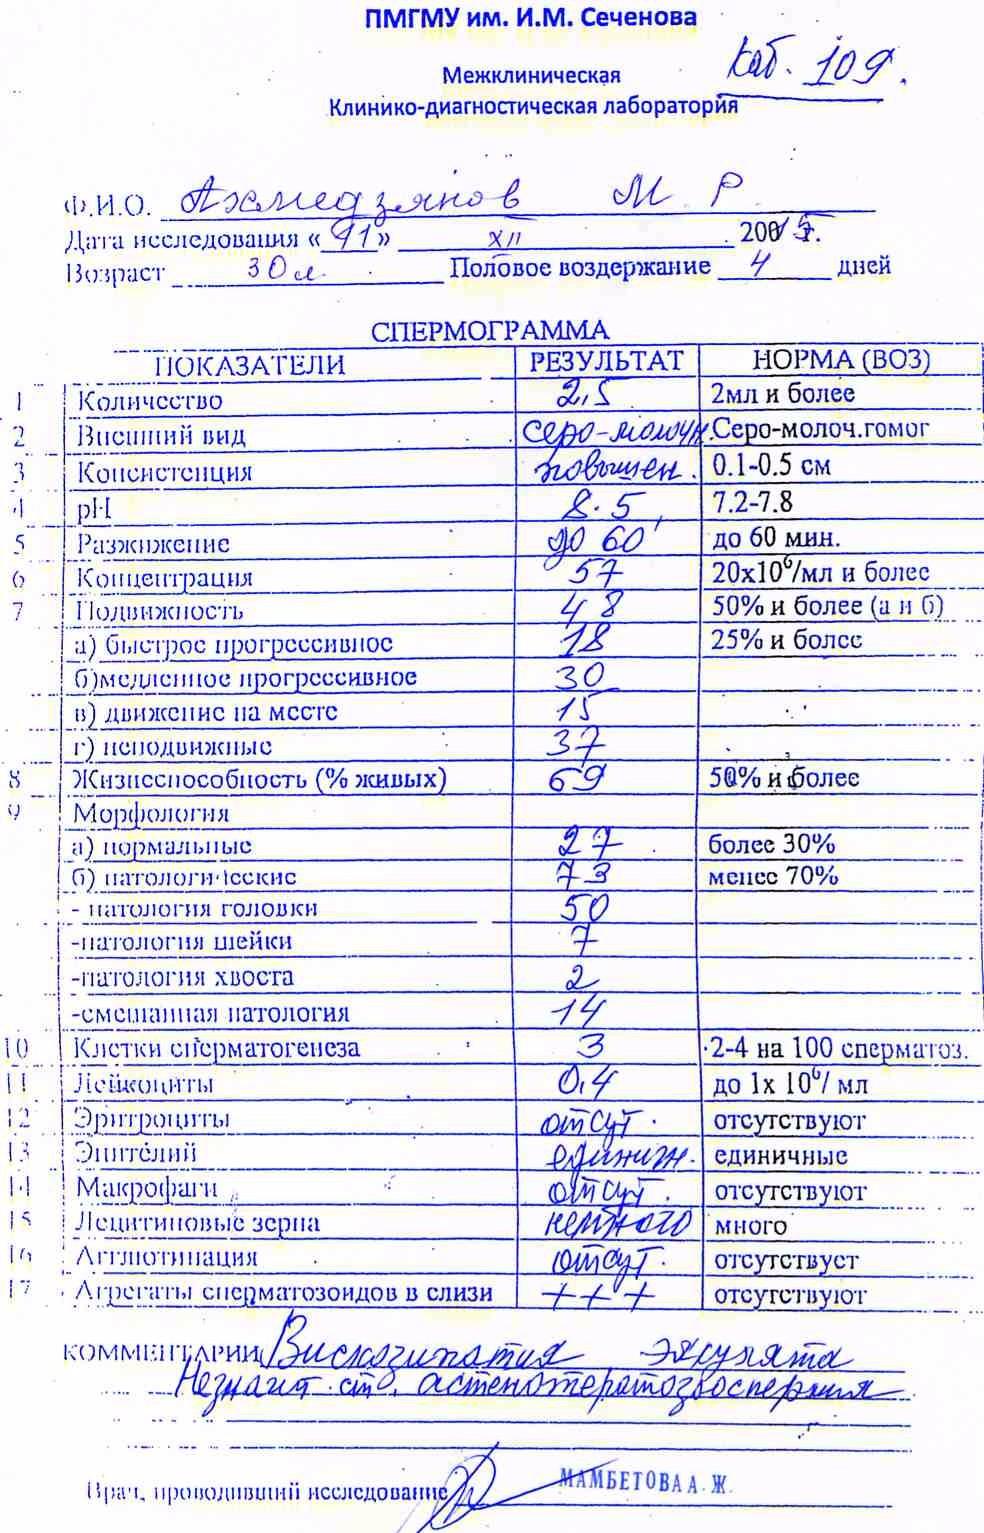 ПМГМУ им. И.М. Сеченова
Каб. 109.
Межклиническая
Клинико-диагностическая лаборатория
Ф.И.О. Ахмедзянов М. Р.
Дата исследования «11» XII 2015г.
Возраст 30 л. Половое воздержание 4 дней
СПЕРМОГРАММА
ПОКАЗАТЕЛИ РЕЗУЛЬТАТ НОРМА (ВОЗ)
1 Количество 2,5 2мл и более
2 Внешний вид серо-молочн. Серо-молоч.гомог
3 Консистенция повышен. 0.1-0.5 см
4 pH 8.5 7.2-7.8
5 Разжижение до 60' до 60 мин.
6 Концентрация 57 20х10⁶/мл и более
7 Подвижность 48 50% и более (а и б)
а) быстрое прогрессивное 18 25% и более
б)медленное прогрессивное 30
в) движение на месте 15
г) неподвижные 37
8 Жизнеспособность (% живых) 69 50% и более
9 Морфология
а) нормальные 27 более 30%
б) патологические 73 менее 70%
- патология головки 50
-патология шейки 7
-патология хвоста 2
-смешанная патология 14
10 Клетки сперматогенеза 3 2-4 на 100 сперматоз.
11 Лейкоциты 0,4 до 1х 10⁶/ мл
12 Эритроциты отсут. отсутствуют
13 Эпителий единичн. единичные
14 Макрофаги отсут. отсутствуют
15 Лецитиновые зерна немного много
16 Агглютинация отсут. отсутствует
17 Агрегаты сперматозоидов в слизи +++ отсутствуют
КОММЕНТАРИИ Вискозипатия эякулята
Незначит. ст. астенотератозооспермия
Врач, проводивший исследование МАМБЕТОВА А. Ж.